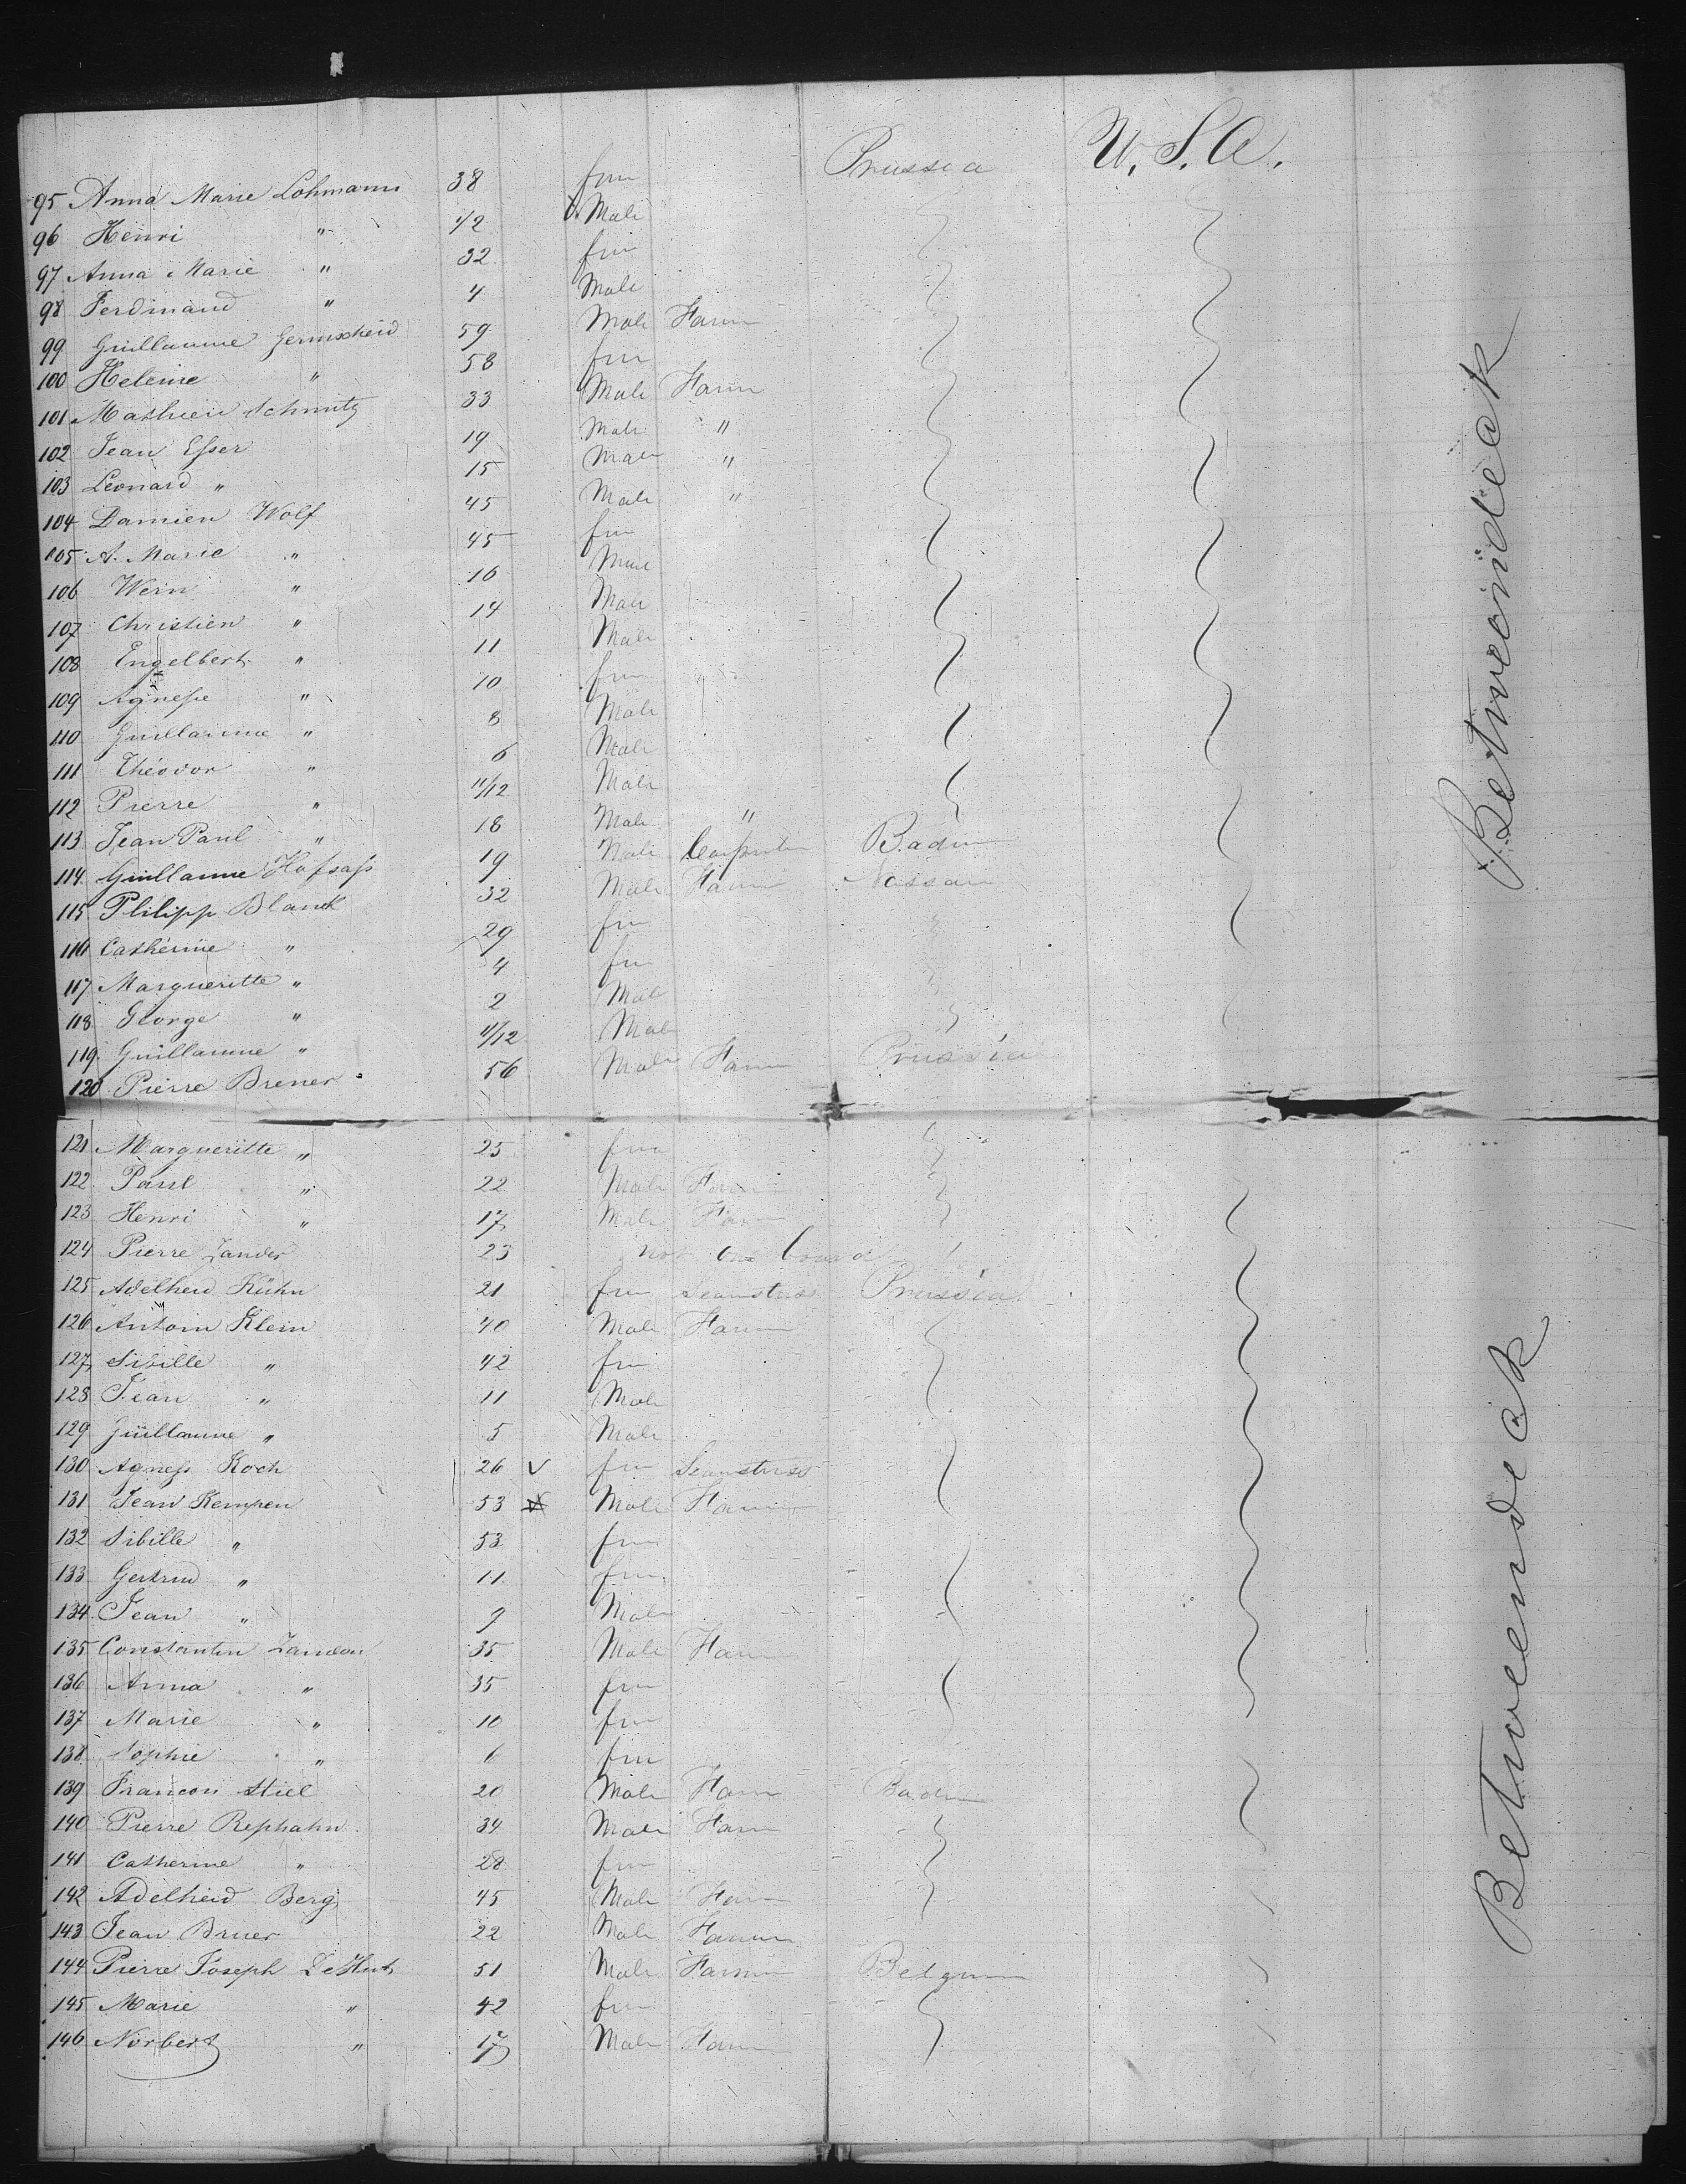 95 Anna Marie Lohmann 38 fem Prussia U. S. A.
96 Henri " 1/2 Male
97 Anna Marie " 32 fem
98 Ferdinand " 4 Male
99 Guillaume Germscheid 59 Male Farm
100 Heleine " 58 fem
101 Mathieu Schmitz 33 Male Farm
102 Jean Esser 19 Male "
103 Leonard " 15 Male "
104 Damien Wolf 45 Male "
105 A. Marie " 45 fem
106 Wern " 16 Male
107 Christien " 14 Male
108 Engelbert " 11 Male
109 Agnesse " 10 fem
110 Guillaume " 8 Male
111 Théodor " 6 Male
112 Pierre " 11/12 Male
113 Jean Paul " 18 Male "
114 Guillaume Hofsass 19 Male Carpenter Baden
115 Philipp Blank 32 Male Farm Nassau
116 Cathérine " 29 fem
117 Margueritte " 4 fem
118 George " 2 Male
119 Guillaume " 11/12 Male
120 Pierre Brener 56 Male Farm Prussia
121 Margueritte " 25 fem
122 Paul " 22 Male Farm
123 Henri " 17 Male Farm
124 Pierre Zander 23 not on board
125 Adelheid Kühn 21 fem Seamstress Prussia
126 Antoin Klein 40 Male Farm
127 Sibille " 42 fem
128 Jean " 11 Male
129 Guillaume " 5 Male
130 Agness Koch 26 v fem Seamstress
131 Jean Kempen 53 Male Farm
132 Sibille " 53 fem
133 Gertrud " 11 fem
134 Jean " 9 Male
135 Constantin 35 Male Farm
136 Anna " 35 fem
137 Marie " 10 fem
138 Sophie " 6 fem
139 Francon Stiel 20 Male Farm Baden
140 Pierre Rephahn 34 Male Farm
141 Catherine " 28 fem
142 Adelheid Berg 45 Male Farm
143 Jean Bruer 22 Male Farm
144 Pierre Joseph 51 Male Farm Belgium
145 Marie " 42 fem
146 Norbert " 17 Male Farm
Betweendeck
Betweendeck